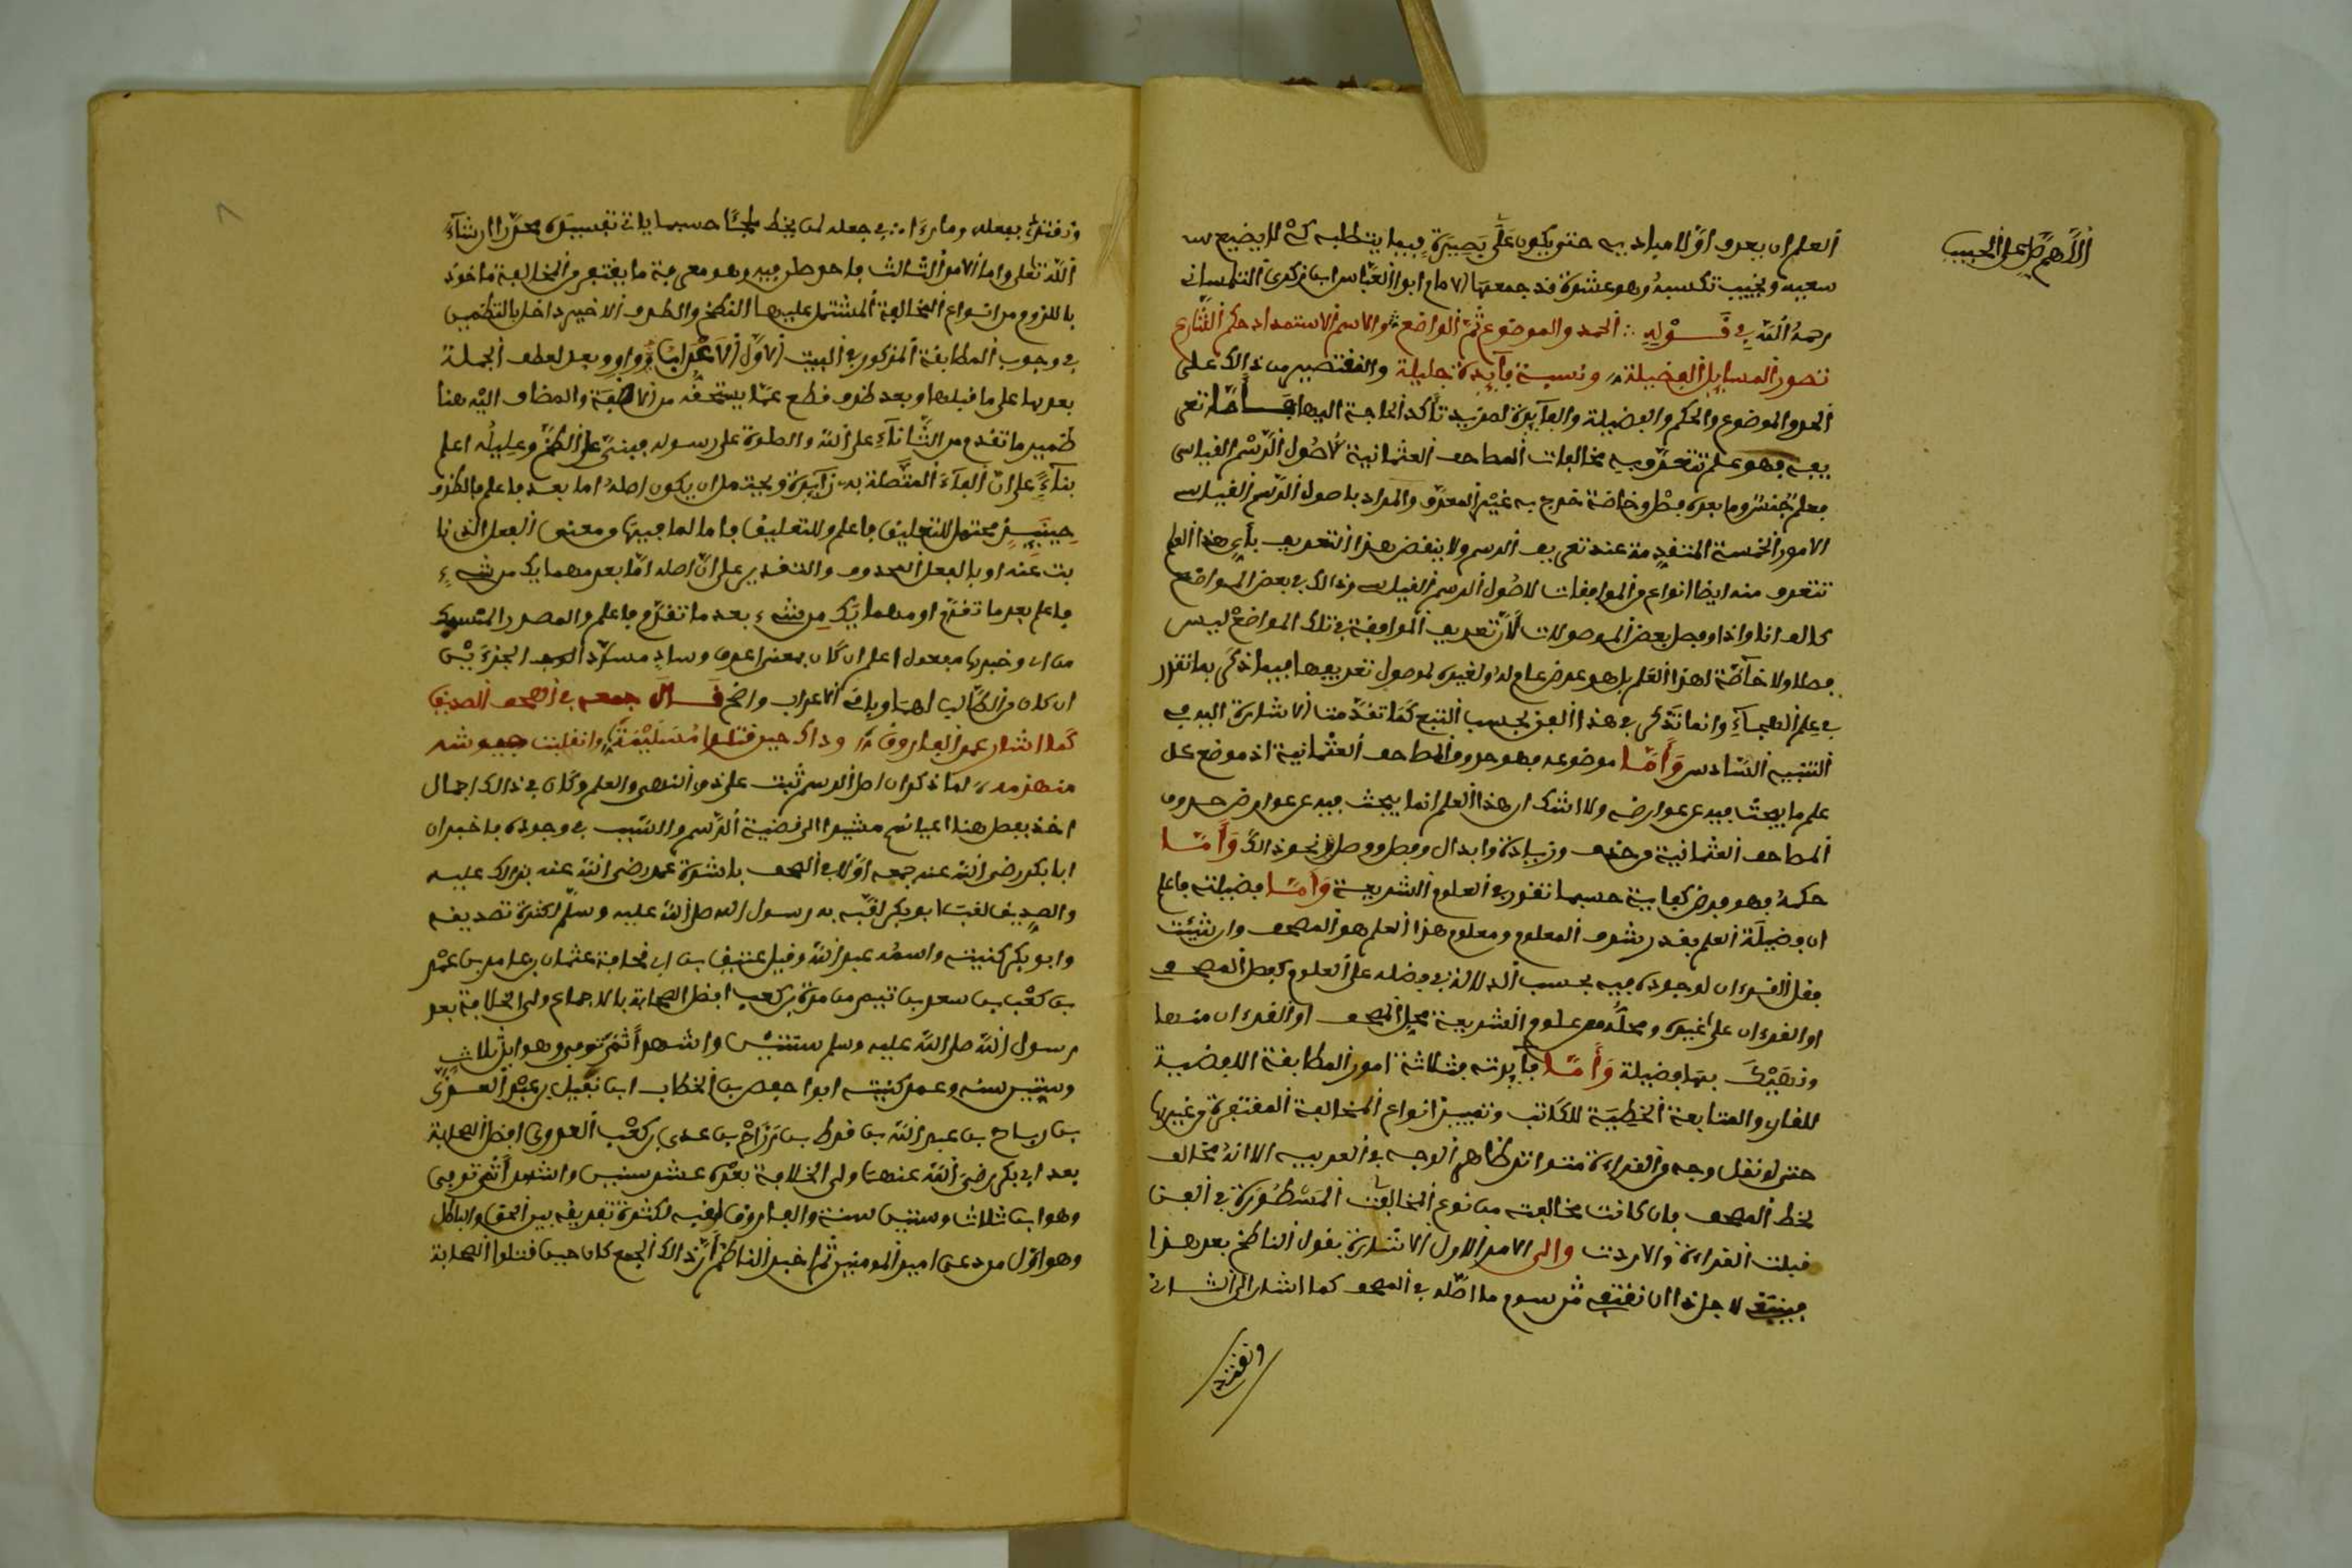 اللهم صل على الحبيب
العلم ان يعرف اولا مباديه حتى يكون على بصيرة فيما يتطلبه كي لا يضيع
سعيه ويخيب تكسبه وهي عشرة قد جمعها الامام ابوا العباس ابن زكرى التلمسانى
رحمه الله في قوله ∴ الحد والموضوع ثم الواضع ∴ والاسم الاستمداد حكم الشارع
تصور المسايل الفضيلة ∴ ونسبة فآيدة جليلة والنقتصر من ذالك على
الحد والموضوع والحكم والفضيلة والفآيدة لمزيد تأكد الحاجة اليها فاما تعر
يفه فهو علم تتعرف به مخالفات المصاحف العثمانية لاصول الرسم القياسى
فعلم جنس وما بعده فصل وخاصة خرج به غير المعرف والمراد باصول الرسم القياسى
الامور الخمسة المتقدمة عند تعريف الرسم ولا ينقض هذا التعريف بأن هذا العلم
تتعرف منه ايضا انواع من الموافقات لاصول الرسم القياسى وذالك في بعض المواضع
كالف انا واذا وفصل بعض الموصولات لأن تعريف الموافقة في تلك المواضع ليس
فصلا ولا خاصة لهذا العلم بل هو عرض عام له ولغيره لحصول تعريفها فيما ذكر بما تقرر
في علم الهجآء وانما تذكر في هذا الفن بحسب التبع كما تقدمت الاشارة اليه في
التنبيه السادس وأما موضوعه فهو حروف المصاحف العثمانية اذ موضع كل
علم ما يبحث فيه عن عوارضه ولا شك ان هذا العلم انما يبحث فيه عن عوارض حروف
المصاحف العثمانية من حذف وزيادة وابدال وفصل ووصل ونحو ذالك وأما
حكمه فهو فرض كفاية حسبما تقرر في العلوم الشريعة وأما فضيلته فاعلم
ان فضيلة العلم بقدر شرف المعلوم ومعلوم هذا العلم هو المصحف وان شئت
فقل القرءان لوجوده فيه بحسب الدلالة ففضله على العلوم كفضل المصحف
او القرءان على غيره ومحله من علوم الشريعة محل المصحف او القرءان منها
وناهيك بها فضيلة وأما فآيدته فثلاثة امور المطابقة اللفظية
للقارى والمتابعة الخطية للكاتب وتمييز انواع المخالفة المغتفرة من غيرها
حتى لو نقل وجه من القراءة متواتر ظاهر الوجه في العربية الا انه مخالف
لخط المصحف فان كانت مخالفته من نوع المخالفات المسطورة في الفن
قبلت القراءة والا ردت والى الامر الاول الاشارة بقول الناظم بعد هذا
فينبغى لاجل ذا ان نقتفى مرسوم ما اصله في المصحف كما اشار الى الثانى
ونقتدى
ونقتدى بفعله وما رءا ∴ في جعله لمن يخط ملجئا حسبما ياتى تفسيره محررا ان شآء
الله تعلى واما الامر الثالث فاحوط فيه وهو معرفة ما يغتفر من المخالفة ماخوذ
باللزوم من انواع المخالفة المشتمل عليها النظم والطرف الاخير داخل بالتضمين
في وجوب المطابقة المذكور في البيت الاول الاعراب وواو وبعد لعطف الجملة
بعدها على ما قبلها وبعد ظرف قطع عما يستحقه من الاضافة والمضاف اليه هنا
ضمير ما تقدم من الثنآء على الله والصلوة على رسوله فبنى على الضم وعامله اعلم
بنآء على ان الفآء المتصلة به زآيدة ويحتمل ان يكون اصله اما بعد فاعلم فالظرف
حينئذ محتمل للتعليق فاعلم وللتعليق باما لما فيها من معنى الفعل الذى نا
بت عنه او بالفعل المحذوف والتقدير على ان اصله اما بعد مهما يك من شىء
فاعلم بعد ما تقدم او مهما يك من شىء بعد ما تقدم فاعلم والمصدر المنسبك
من ان وخبرها مفعول اعلم ان كان بمعنى اعرف وساد مسد الجزءين
ان كان من الطالب لهما وباقى الاعراب واضح قال جمعه في الصحف الصديق
كما اشار عمر الفاروق ∴ وذاك حين قتلوا مسيلمة ∴ وانقلبت جيوشه
منهزمه ∴ لما ذكر ان اصل الرسم ثبت عن ذوى النهى والعلم وكان في ذالك اجمال
اخذ يفصل هنا اعيانهم مشيرا الى قضية الرسم والسبب في وجوده فاخبر ان
ابا بكر رضى الله عنه جمعه اولا في الصحف باشارة عمر رضى الله عنه بذالك عليه
والصديق لقب ابو بكر لقبه به رسول الله صلى الله عليه وسلم لكثرة تصديقه
وابو بكر كنيته واسمه عبد الله وقيل عتيق بن ابى قحافة عثمان بن عامر بن عمرو
بن كعب بن سعد بن تيم بن مرة بن كعب افضل الصحابة بالاجماع ولى الخلافة بعد
رسول الله صلى الله عليه وسلم سنتين واشهرا ثم توفى وهو ابن ثلاث
وستين سنه وعمر كنيته ابوا حفص بن الخطاب ابن نفيل بن عبد العزى
بن رياح بن عبد الله بن قرط بن رزاح بن عدى بن كعب العدوى افضل الصحابة
بعد ابى بكر رضى الله عنهما ولى الخلافة بعده عشر سنين واشهرا ثم توفى
وهو ابن ثلاث وستين سنة والفاروق لقبه لكثرة تفريقه بين الحق والباطل
وهو اول من دعى امير المومنين ثم اخبر الناظم أن ذالك الجمع كان حين قتلوا الصحابة